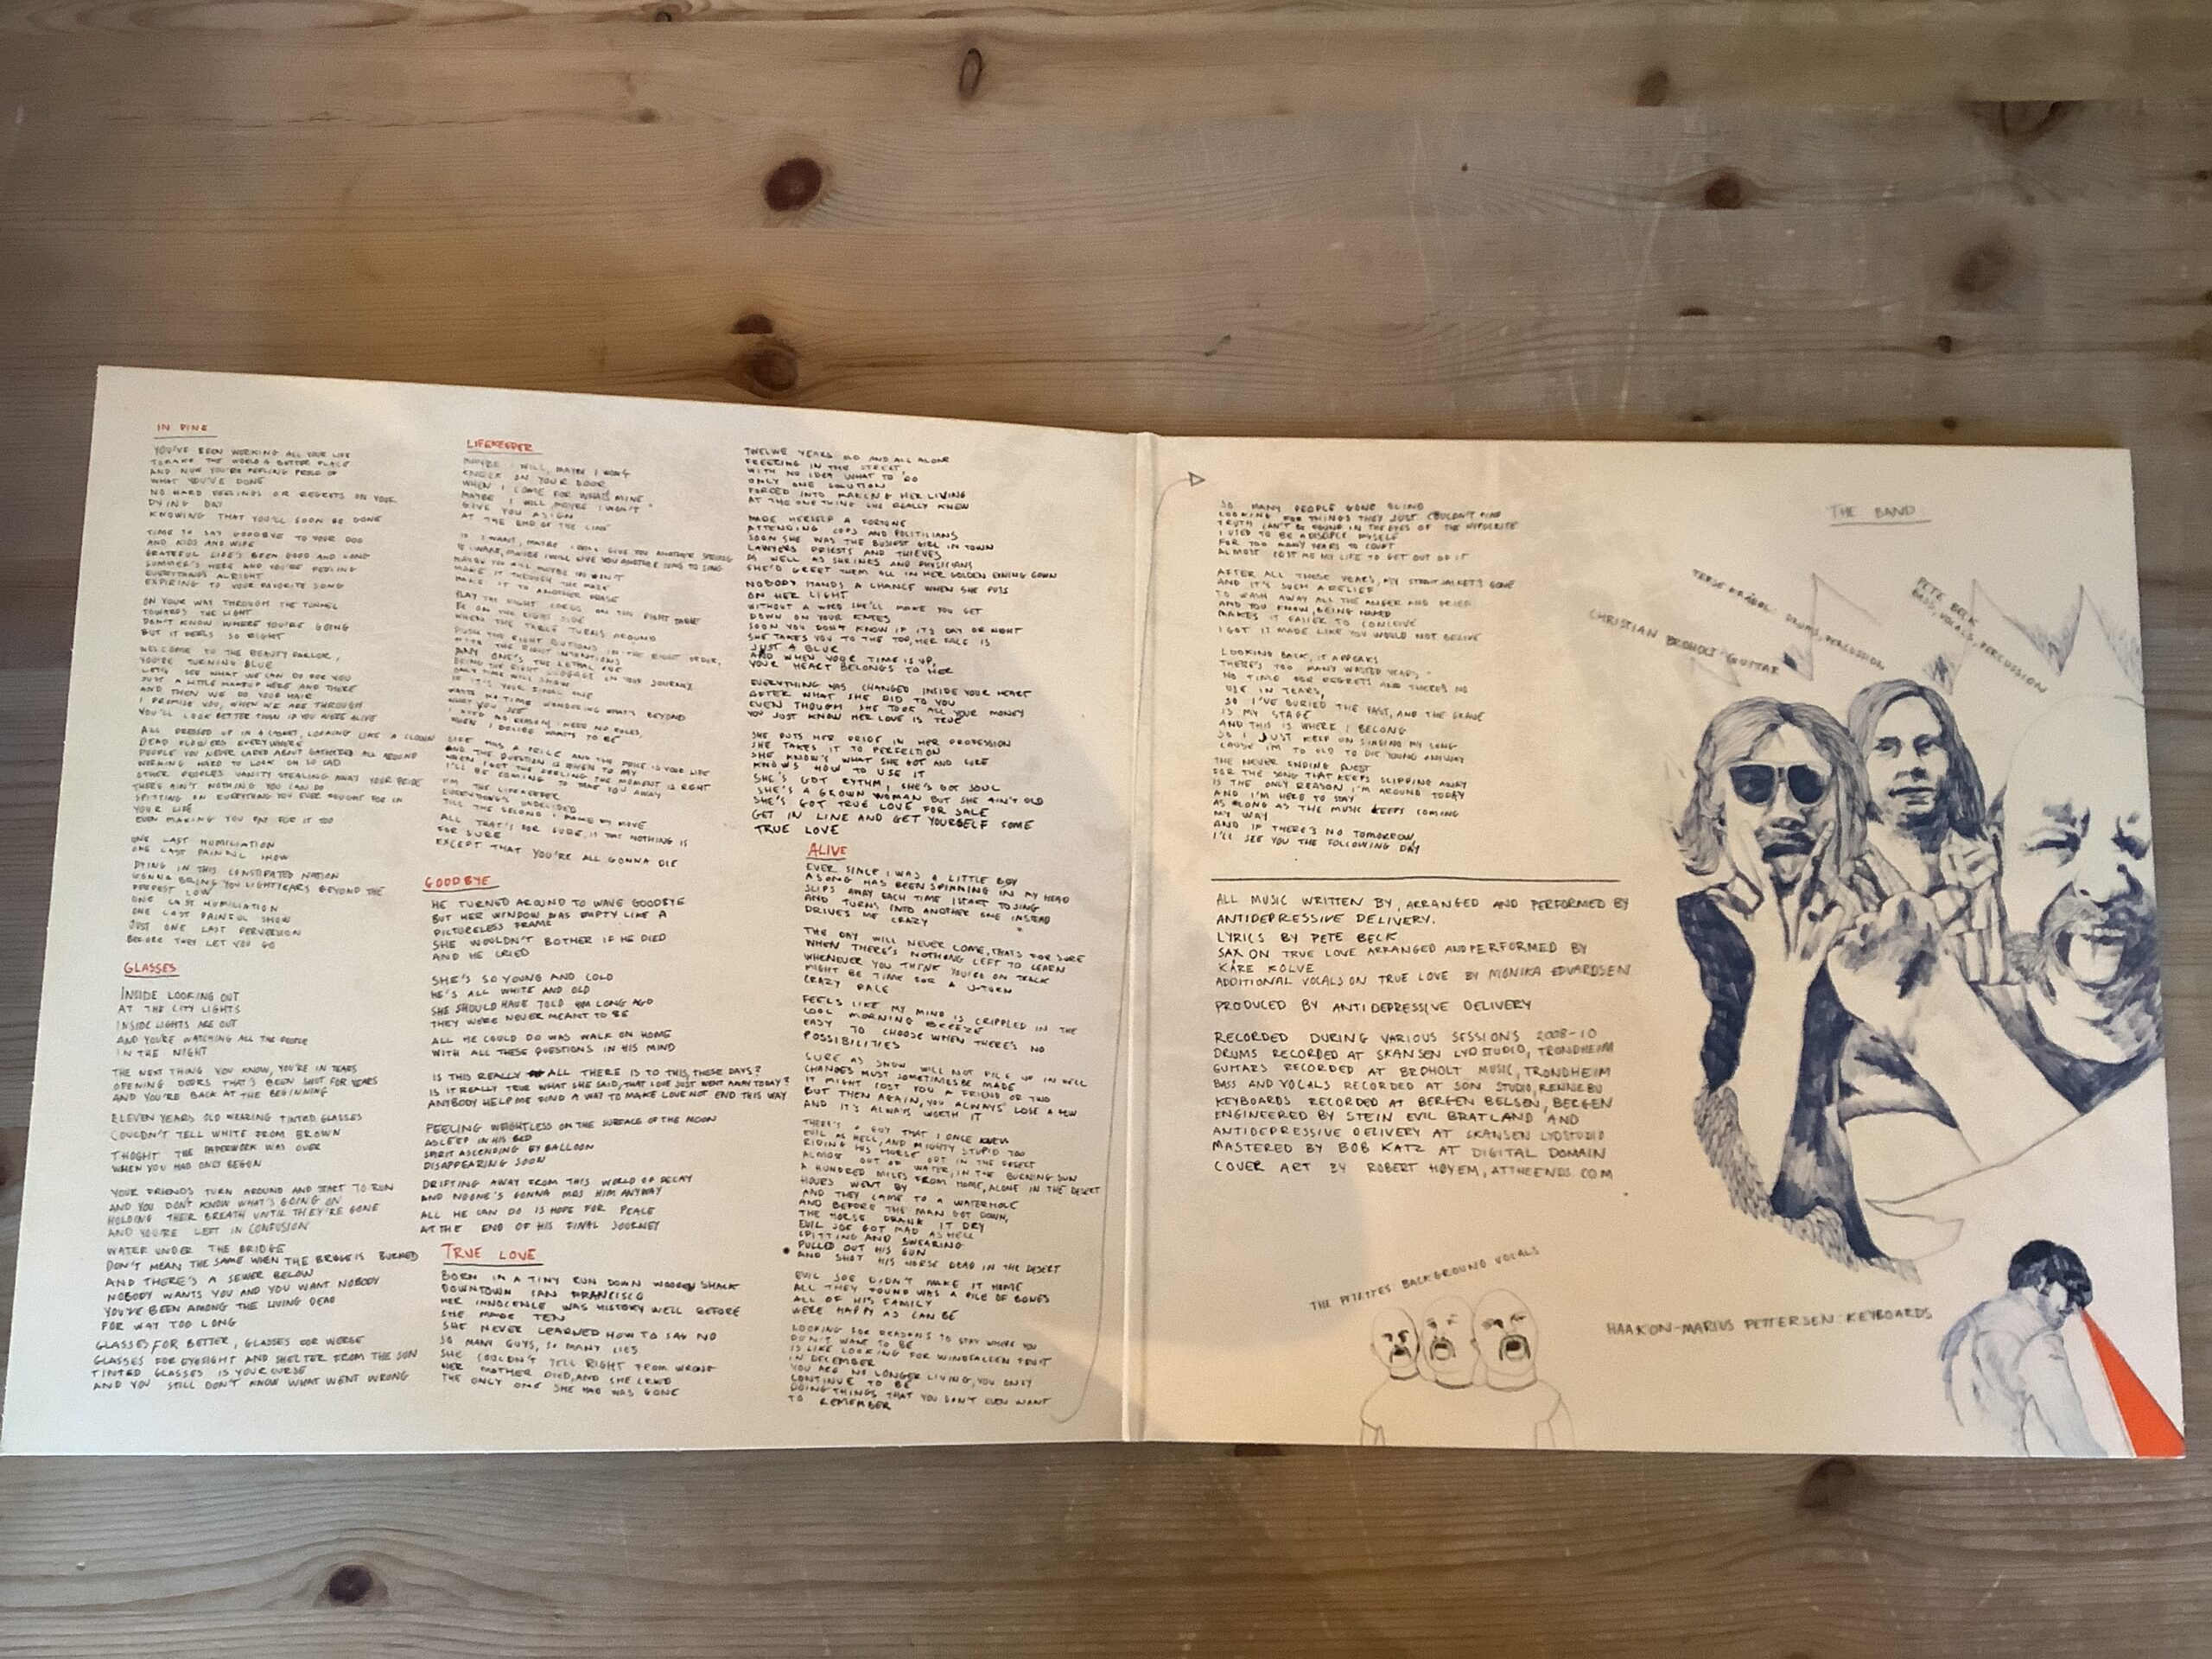 IN PINK
YOU'VE BEEN WORKING ALL YOUR LIFE
TO MAKE THE WORLD A BETTER PLACE
AND NOW YOU'RE FEELING PROUD OF
WHAT YOU'VE DONE
NO HARD FEELINGS OR REGRETS ON YOUR
DYING DAY
KNOWING THAT YOU'LL SOON BE GONE
TIME TO SAY GOODBYE TO YOUR DOG
AND KIDS AND WIFE
GRATEFUL LIFE'S BEEN GOOD AND LONG
SUMMER'S HERE AND YOU'RE FEELING
EVERYTHING'S ALRIGHT
EXPIRING TO YOUR FAVORITE SONG
ON YOUR WAY THROUGH THE TUNNEL
TOWARDS THE LIGHT
DON'T KNOW WHERE YOU'RE GOING
BUT IT FEELS SO RIGHT
WELCOME TO THE BEAUTY PARLOR,
YOU'RE TURNING BLUE
LET'S SEE WHAT WE CAN DO FOR YOU
JUST A LITTLE MAKEUP HERE AND THERE
AND THEN WE DO YOUR HAIR
I PROMISE YOU, WHEN WE ARE THROUGH
YOU'LL LOOK BETTER THAN IF YOU WERE ALIVE
ALL DRESSED UP IN A CASKET, LOOKING LIKE A CLOWN
DEAD FLOWERS EVERYWHERE
PEOPLE YOU NEVER CARED ABOUT GATHERED ALL AROUND
WORKING HARD TO LOOK OH SO SAD
OTHER PEOPLES VANITY STEALING AWAY YOUR PRIDE
THERE AIN'T NOTHING YOU CAN DO
SPITTING ON EVERYTHING YOU EVER FOUGHT FOR IN
YOUR LIFE
EVEN MAKING YOU PAY FOR IT TOO
ONE LAST HUMILIATION
ONE LAST PAINFUL SHOW
DYING IN THIS CONSTIPATED NATION
GONNA BRING YOU LIGHTYEARS BEYOND THE
DEEPEST LOW
ONE LAST HUMILIATION
ONE LAST PAINFUL SHOW
JUST ONE LAST PERVERSION
BEFORE THEY LET YOU GO
GLASSES
INSIDE LOOKING OUT
AT THE CITY LIGHTS
INSIDE LIGHTS ARE OUT
AND YOU'RE WATCHING ALL THE PEOPLE
IN THE NIGHT
THE NEXT THING YOU KNOW, YOU'RE IN TEARS
OPENING DOORS THAT'S BEEN SHUT FOR YEARS
AND YOU'RE BACK AT THE BEGINNING
ELEVEN YEARS OLD WEARING TINTED GLASSES
COULDN'T TELL WHITE FROM BROWN
THOGHT THE PAPERWORK WAS OVER
WHEN YOU HAD ONLY BEGUN
YOUR FRIENDS TURN AROUND AND START TO RUN
AND YOU DON'T KNOW WHAT'S GOING ON
HOLDING THEIR BREATH UNTIL THEY'RE GONE
AND YOU'RE LEFT IN CONFUSION
WATER UNDER THE BRIDGE
DON'T MEAN THE SAME WHEN THE BRIDGE IS BURNED
AND THERE'S A SEWER BELOW
NOBODY WANTS YOU AND YOU WANT NOBODY
YOU'VE BEEN AMONG THE LIVING DEAD
FOR WAY TOO LONG
GLASSES FOR BETTER, GLASSES FOR WORSE
GLASSES FOR EYESIGHT AND SHELTER FROM THE SUN
TINTED GLASSES IS YOUR CURSE
AND YOU STILL DON'T KNOW WHAT WENT WRONG
LIFEKEEPER
MAYBE I WILL, MAYBE I WON'T
KNOCK ON YOUR DOOR
WHEN I COME FOR WHAT'S MINE
MAYBE I WILL, MAYBE I WON'T
GIVE YOU A SIGN
AT THE END OF THE LINE
IF I WANT, MAYBE I WILL GIVE YOU ANOTHER SPRING
IF I WANT, MAYBE I WILL GIVE YOU ANOTHER SONG TO SING
MAYBE YOU WILL MAYBE YOU WON'T
MAKE IT THROUGH THE MAZE
MAKE IT TO ANOTHER PHASE
PLAY THE RIGHT CARDS ON THE RIGHT TABLE
BE ON THE RIGHT SIDE
WHEN THE TABLE TURNS AROUND
PUSH THE RIGHT BUTTONS IN THE RIGHT ORDER,
WITH THE RIGHT INTENTIONS
ANY ONE'S THE LETHAL ONE
BRING THE RIGHT LUGGAGE ON YOUR JOURNEY
ONLY TIME WILL SHOW
IF IT'S YOUR FINAL ONE
WASTE NO TIME WONDERING WHAT'S BEYOND
WHAT YOU SEE
I NEED NO REASON, I NEED NO RULES,
WHEN I DECIDE WHAT'S TO BE
LIFE HAS A PRICE AND THE PRICE IS YOUR LIFE
AND THE QUESTION IS WHEN TO PAY
WHEN I GET THE FEELING THE MOMENT IS RIGHT
I'LL BE COMING TO TAKE YOU AWAY
I'M THE LIFEKEEPER
EVERYTHING'S UNDECIDED
TILL THE SECOND I MAKE MY MOVE
ALL THAT'S FOR SURE, IS THAT NOTHING IS
FOR SURE
EXCEPT THAT YOU'RE ALL GONNA DIE
GOODBYE
HE TURNED AROUND TO WAVE GOODBYE
BUT HER WINDOW WAS EMPTY LIKE A
PICTURELESS FRAME
SHE WOULDN'T BOTHER IF HE DIED
AND HE CRIED
SHE'S SO YOUNG AND COLD
HE'S ALL WHITE AND OLD
SHE SHOULD HAVE TOLD HIM LONG AGO
THEY WERE NEVER MEANT TO BE
ALL HE COULD DO WAS WALK ON HOME
WITH ALL THESE QUESTIONS IN HIS MIND
IS THIS REALLY ALL THERE IS TO THIS, THESE DAYS?
IS IT REALLY TRUE WHAT SHE SAID, THAT LOVE JUST WENT AWAY TODAY?
ANYBODY HELP ME FIND A WAY TO MAKE LOVE NOT END THIS WAY
FEELING WEIGHTLESS ON THE SURFACE OF THE MOON
ASLEEP IN HIS BED
SPIRIT ASCENDING BY BALLOON
DISAPPEARING SOON
DRIFTING AWAY FROM THIS WORLD OF DECAY
AND NOONE'S GONNA MISS HIM ANYWAY
ALL HE CAN DO IS HOPE FOR PEACE
AT THE END OF HIS FINAL JOURNEY
TRUE LOVE
BORN IN A TINY RUN DOWN WOODEN SHACK
DOWNTOWN SAN FRANCISCO
HER INNOCENCE WAS HISTORY WELL BEFORE
SHE MADE TEN
SHE NEVER LEARNED HOW TO SAY NO
SO MANY GUYS, SO MANY LIES
SHE COULDN'T TELL RIGHT FROM WRONG
HER MOTHER DIED, AND SHE CRIED
THE ONLY ONE SHE HAD WAS GONE
TWELVE YEARS OLD AND ALL ALONE
FREEZING IN THE STREET
WITH NO IDEA WHAT TO DO
ONLY ONE SOLUTION
FORCED INTO MAKING HER LIVING
AT THE ONE THING SHE REALLY KNEW
MADE HERSELF A FORTUNE
ATTENDING COPS AND POLITICIANS
SOON SHE WAS THE BUSIEST GIRL IN TOWN
LAWYERS PRIESTS AND THIEVES
AS WELL AS SHRINKS AND PHYSICIANS
SHE'D GREET THEM ALL IN HER GOLDEN EVENING GOWN
NOBODY STANDS A CHANCE WHEN SHE PUTS
ON HER LIGHT
WITHOUT A WORD SHE'LL MAKE YOU GET
DOWN ON YOUR KNEES
SOON YOU DON'T KNOW IF IT'S DAY OR NIGHT
SHE TAKES YOU TO THE TOP, HER FACE IS
JUST A BLUR
AND WHEN YOUR TIME IS UP,
YOUR HEART BELONGS TO HER
EVERYTHING HAS CHANGED INSIDE YOUR HEART
AFTER WHAT SHE DID TO YOU
EVEN THOUGH SHE TOOK ALL YOUR MONEY
YOU JUST KNOW HER LOVE IS TRUE
SHE PUTS HER PRIDE IN HER PROFESSION
SHE TAKES IT TO PERFECTION
SHE KNOW'S WHAT SHE GOT AND SURE
KNOWS HOW TO USE IT
SHE'S GOT RYTHM, SHE'S GOT SOUL
SHE'S A GROWN WOMAN BUT SHE AIN'T OLD
SHE'S GOT TRUE LOVE FOR SALE
GET IN LINE AND GET YOURSELF SOME
TRUE LOVE
ALIVE
EVER SINCE I WAS A LITTLE BOY
A SONG HAS BEEN SPINNING IN MY HEAD
SLIPS AWAY EACH TIME I START TO SING
AND TURNS INTO ANOTHER ONE INSTEAD
DRIVES ME CRAZY
THE DAY WILL NEVER COME, THAT'S FOR SURE
WHEN THERE'S NOTHING LEFT TO LEARN
WHENEVER YOU THINK YOU'RE ON TRACK
MIGHT BE TIME FOR A U-TURN
CRAZY RACE
FEELS LIKE MY MIND IS CRIPPLED IN THE
COOL MORNING BREEZE
EASY TO CHOOSE WHEN THERE'S NO
POSSIBILITIES
SURE AS SNOW WILL NOT PILE UP IN HELL
CHANGES MUST SOMETIMES BE MADE
IT MIGHT COST YOU A FRIEND OR TWO
BUT THEN AGAIN, YOU ALWAYS LOSE A FEW
AND IT'S ALWAYS WORTH IT
THERE'S A GUY THAT I ONCE KNEW
EVIL AS HELL, AND MIGHTY STUPID TOO
RIDING HIS HORSE OUT IN THE DESERT
ALMOST OUT OF WATER, IN THE BURNING SUN
A HUNDRED MILES FROM HOME, ALONE IN THE DESERT
HOURS WENT BY
AND THEY CAME TO A WATERHOLE
AND BEFORE THE MAN GOT DOWN,
THE HORSE DRANK IT DRY
EVIL JOE GOT MAD AS HELL
SPITTING AND SWEARING
PULLED OUT HIS GUN
AND SHOT HIS HORSE DEAD IN THE DESERT
EVIL JOE DIDN'T MAKE IT HOME
ALL THEY FOUND WAS A PILE OF BONES
ALL OF HIS FAMILY
WERE HAPPY AS CAN BE
LOOKING FOR REASONS TO STAY WHERE YOU
DON'T WANT TO BE
IS LIKE LOOKING FOR WINDFALLEN FRUIT
IN DECEMBER
YOU ARE NO LONGER LIVING, YOU ONLY
CONTINUE TO BE
DOING THINGS THAT YOU DON'T EVEN WANT
TO REMEMBER
SO MANY PEOPLE GONE BLIND
LOOKING FOR THINGS THEY JUST COULDN'T FIND
TRUTH CAN'T BE FOUND IN THE EYES OF THE HYPOCRITE
I USED TO BE A DISCIPLE MYSELF
FOR TOO MANY YEARS TO COUNT
ALMOST COST ME MY LIFE TO GET OUT OF IT
AFTER ALL THOSE YEARS, MY STRAITJACKET'S GONE
AND IT'S SUCH A RELIEF
TO WASH AWAY ALL THE ANGER AND GRIEF
AND YOU KNOW, BEING NAKED
MAKES IT EASIER TO CONCEIVE
I GOT IT MADE LIKE YOU WOULD NOT BELIVE
LOOKING BACK, IT APPEARS
THERE'S TOO MANY WASTED YEARS
NO TIME FOR REGRETS AND THERE'S NO
USE IN TEARS,
SO I'VE BURIED THE PAST, AND THE GRAVE
IS MY STAGE
AND THIS IS WHERE I BELONG
SO I JUST KEEP ON SINGING MY SONG
CAUSE I'M TO OLD TO DIE YOUNG ANYWAY
THE NEVER ENDING QUEST
FOR THE SONG THAT KEEPS SLIPPING AWAY
IS THE ONLY REASON I'M AROUND TODAY
AND I'M HERE TO STAY
AS LONG AS THE MUSIC KEEPS COMING
MY WAY
AND IF THERE'S NO TOMORROW,
I'LL SEE YOU THE FOLLOWING DAY
ALL MUSIC WRITTEN BY, ARRANGED AND PERFORMED BY
ANTIDEPRESSIVE DELIVERY.
LYRICS BY PETE BECK
SAX ON TRUE LOVE ARRANGED AND PERFORMED BY
KÅRE KOLVE
ADDITIONAL VOCALS ON TRUE LOVE BY MONIKA EDVARDSEN
PRODUCED BY ANTIDEPRESSIVE DELIVERY
RECORDED DURING VARIOUS SESSIONS 2008-10
DRUMS RECORDED AT SKANSEN LYDSTUDIO, TRONDHEIM
GUITARS RECORDED AT BROHOLT MUSIC, TRONDHEIM
BASS AND VOCALS RECORDED AT SON STUDIO, RENNEBU
KEYBOARDS RECORDED AT BERGEN BELSEN, BERGEN
ENGINEERED BY STEIN EVIL BRATLAND AND
ANTIDEPRESSIVE DELIVERY AT SKANSEN LYDSTUDIO
MASTERED BY BOB KATZ AT DIGITAL DOMAIN
COVER ART BY ROBERT HØYEM, ATTHEENDS.COM
THE BAND
CHRISTIAN BROHOLT: GUITAR
TERJE KRÅBØL: DRUMS, PERCUSSION
PETE BECK
BASS, VOCALS, PERCUSSION
THE PETETTES: BACKGROUND VOCALS
HAAKON-MARIUS PETTERSEN: KEYBOARDS